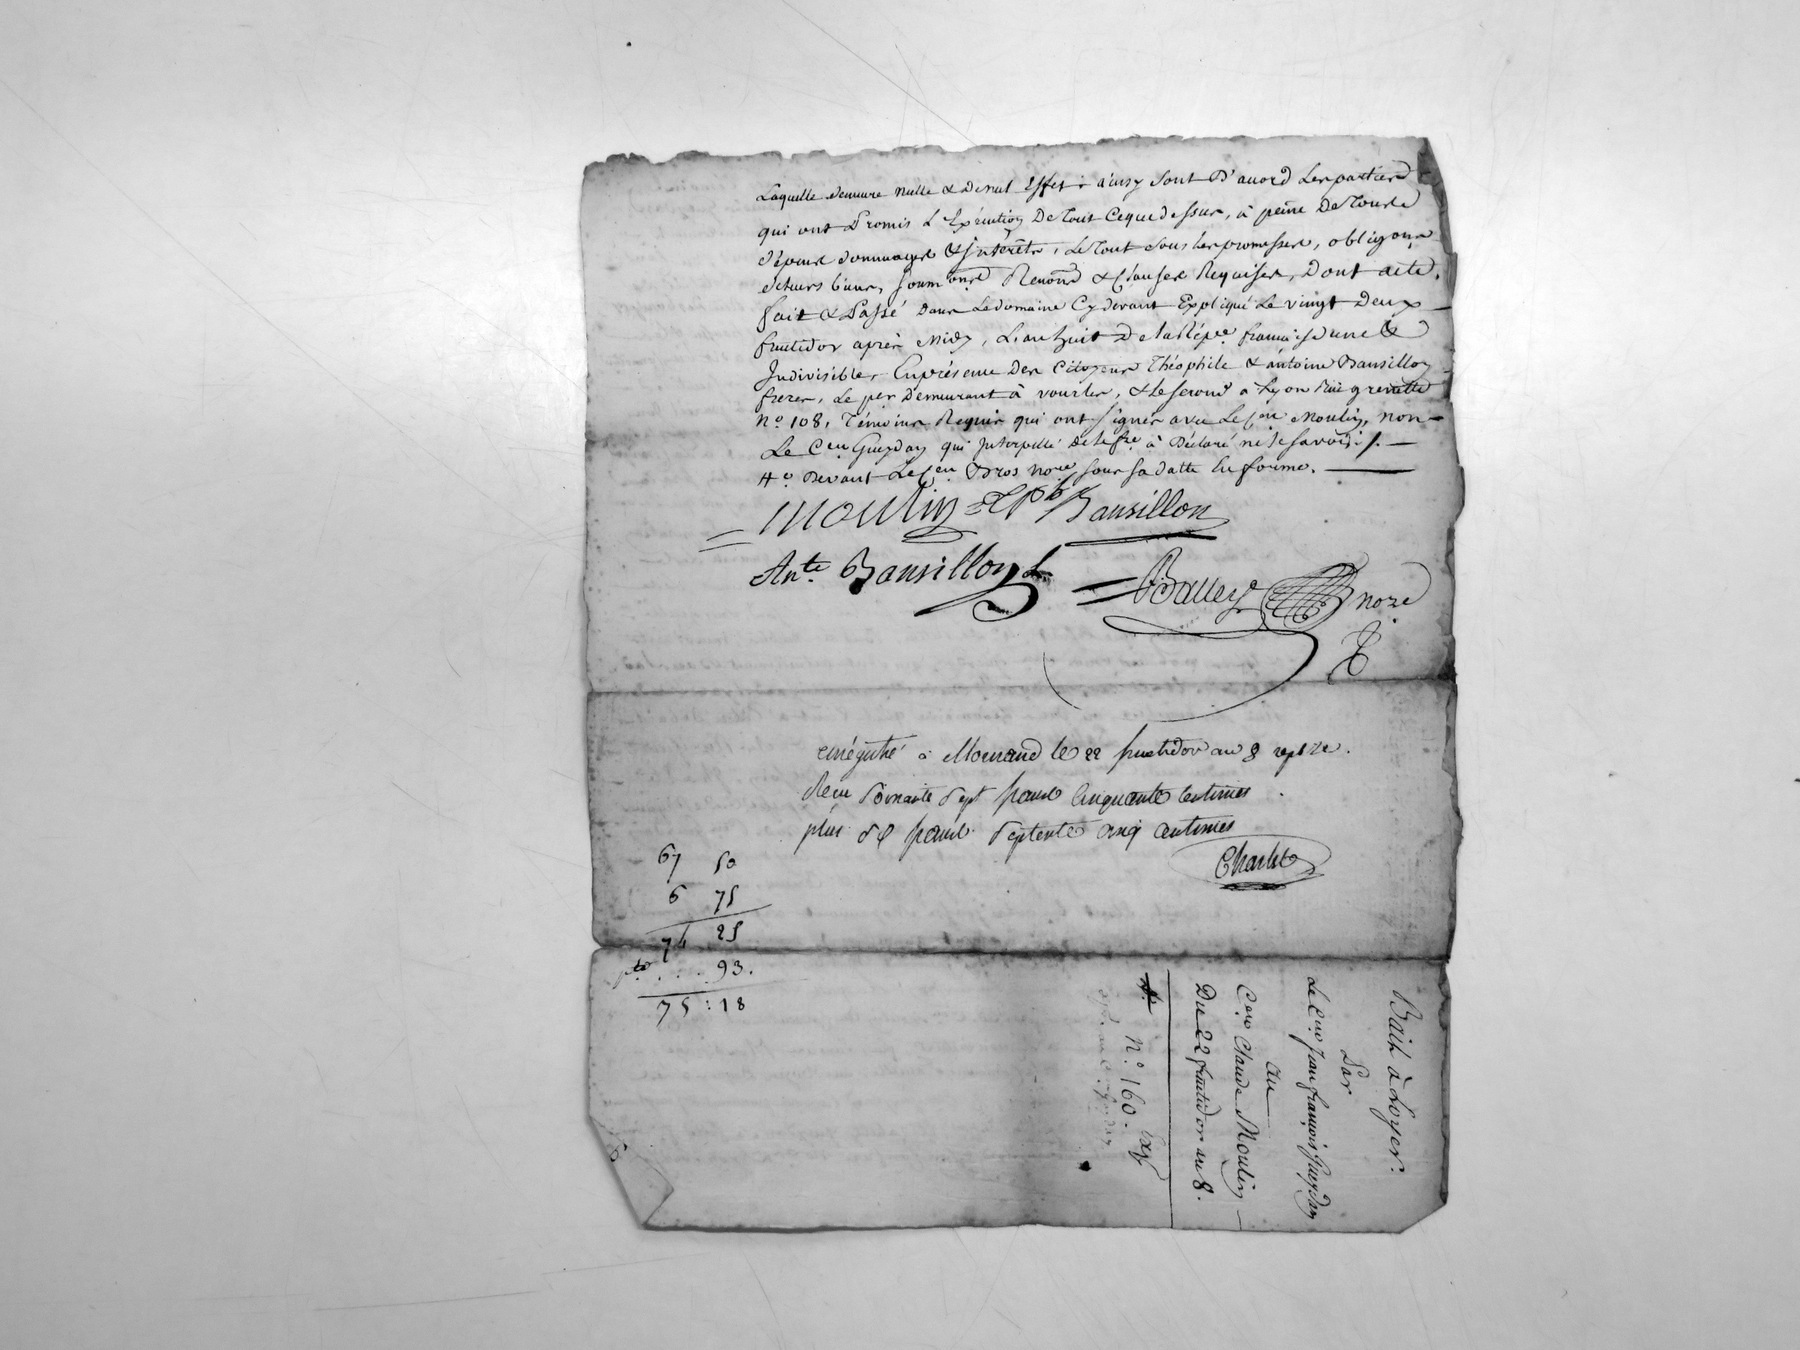 Laquelle demeure nulle & de nul Effet ; ainsy sont D'acord Les parties
qui ont Promis L'Exécution De tout Ceque dessus, à peine De tous
dépens dommages & Intérêts, Le tout sous les promesses, obligons
de leurs biens, soumons Renons & Clauses Requises, Dont acte,
fait & Passé dans Le domaine Cy devant Expliqué Le vingt Deux
fructidor après Midy, L'an huit De la Répe. française une &
Indivisible, En présence Des Citoyens Théophile & antoine Bansillon
freres, Le per Demeurant à vourles, & Le second a Lyon Rue grenette
No. 108, Témoins Requis qui ont signés avec Le Cen Moulin, non
Le Cen Gueydan qui Interpellé de le fre. à Déclaré ne le savoir ;/.
Devant Le Cen Bros nore, sous sa datte En forme.
Moulin Thph Bansillon
Ante. Bansillon
Balley nore
enrégistré à Mornand le 22 fructidor an 8 repte.
Recu soixante sept francs Cinquante centimes
plus six francs septente cinq centimes
Charlet
67 50
6 75
74 25
93.
75 : 18
Bail à Loyer.
Par
Le Cen Jean françois Gueydan
Au
Cen Claude Moulin
Du 22 fructidor an 8.
No. 160.